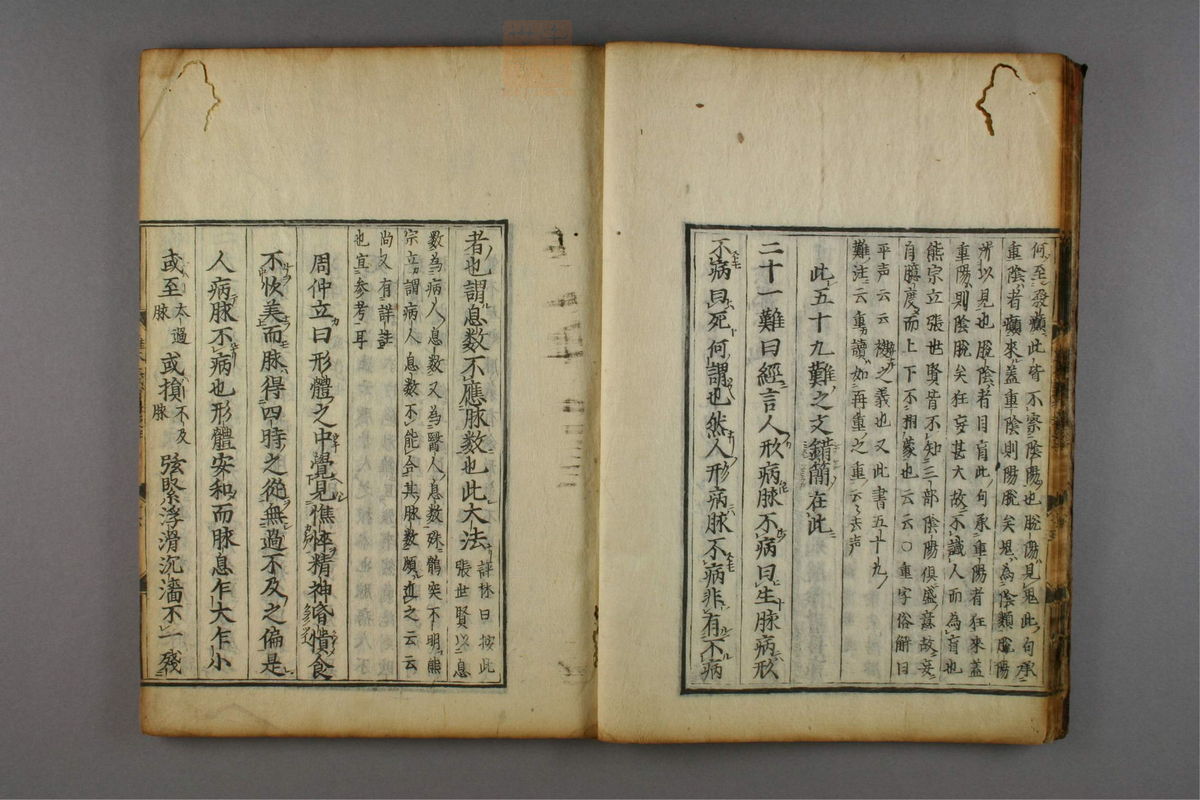 何至発癲此皆不察陰陽也脫陽見鬼此句承
重陰者癲來蓋重陰則陽脫矣鬼為陰類脫陽
所以見也脫陰者目盲此句承重陽者狂來蓋
重陽則陰脫矣狂妄甚大故不識人而為盲也
熊宗立張世賢皆不知三部陰陽俱盛蓋故妄
自臆度而上下不相蒙也云云○重字俗解曰
平声云云複之義也又此書五十九
難注云重讀如再重之重云々去声
此五十九難之文錯簡在此
二十一難曰經言人形病脉不病曰生脉病形
不病曰死何謂也然人形病脉不病非有不病
者也謂息数不應脉数也此大法
評林曰按此
張世賢以息
数為病人息数又為醫人息数殊鶻突不明熊
宗立謂病人息数不能合其脉数頗近之云云
尚又有詳註
也宜参考耳
周仲立曰形體之中覺見憔悴精神昏憒食
不忺美而脉得四時之從無過不及之偏是
人病脉不病也形體安和而脉息乍大乍小
或至太過脉或損不及脉弦緊浮滑沉濇不一殘